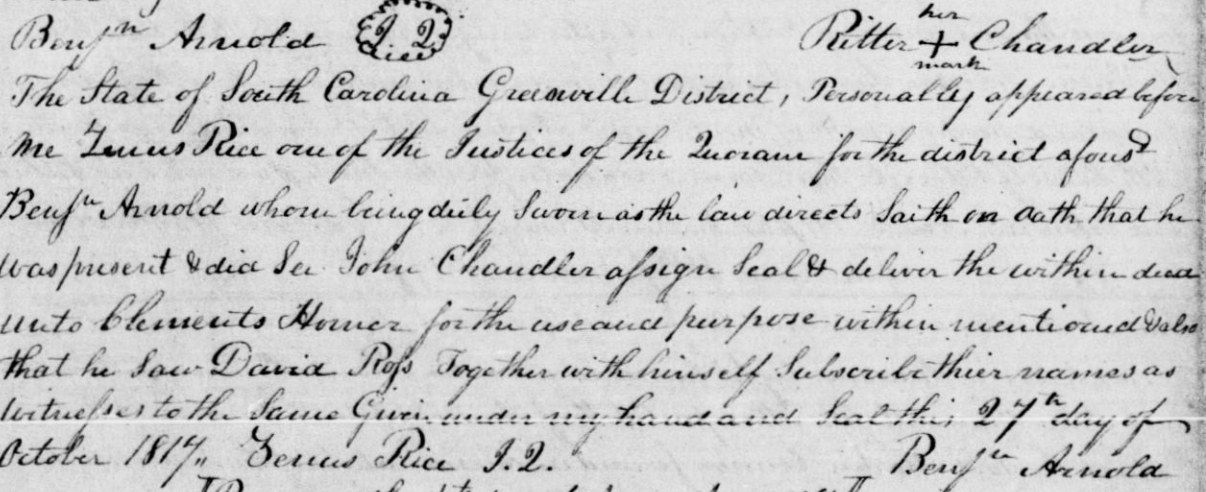 Benjn Arnold J Q Ritter her + mark Chandler
The State of South Carolina Greenville District, Personally appeared before
me Zenus Rice one of the Justices of the Quoram for the district afousd
Benjn Arnold whom being duly Sworn as the law directs Saith on oath that he
was present & did See John Chandler assign Seal & deliver the within deed
unto Clements Homer for the use and purpose within mentioned & also
that he Saw David Ross Together with himself Subscribe thier names as
Witnesses to the Same Given under my hand and Seal this 27th day of
October 1817,, Zenus Rice J.Q. Benjn Arnold